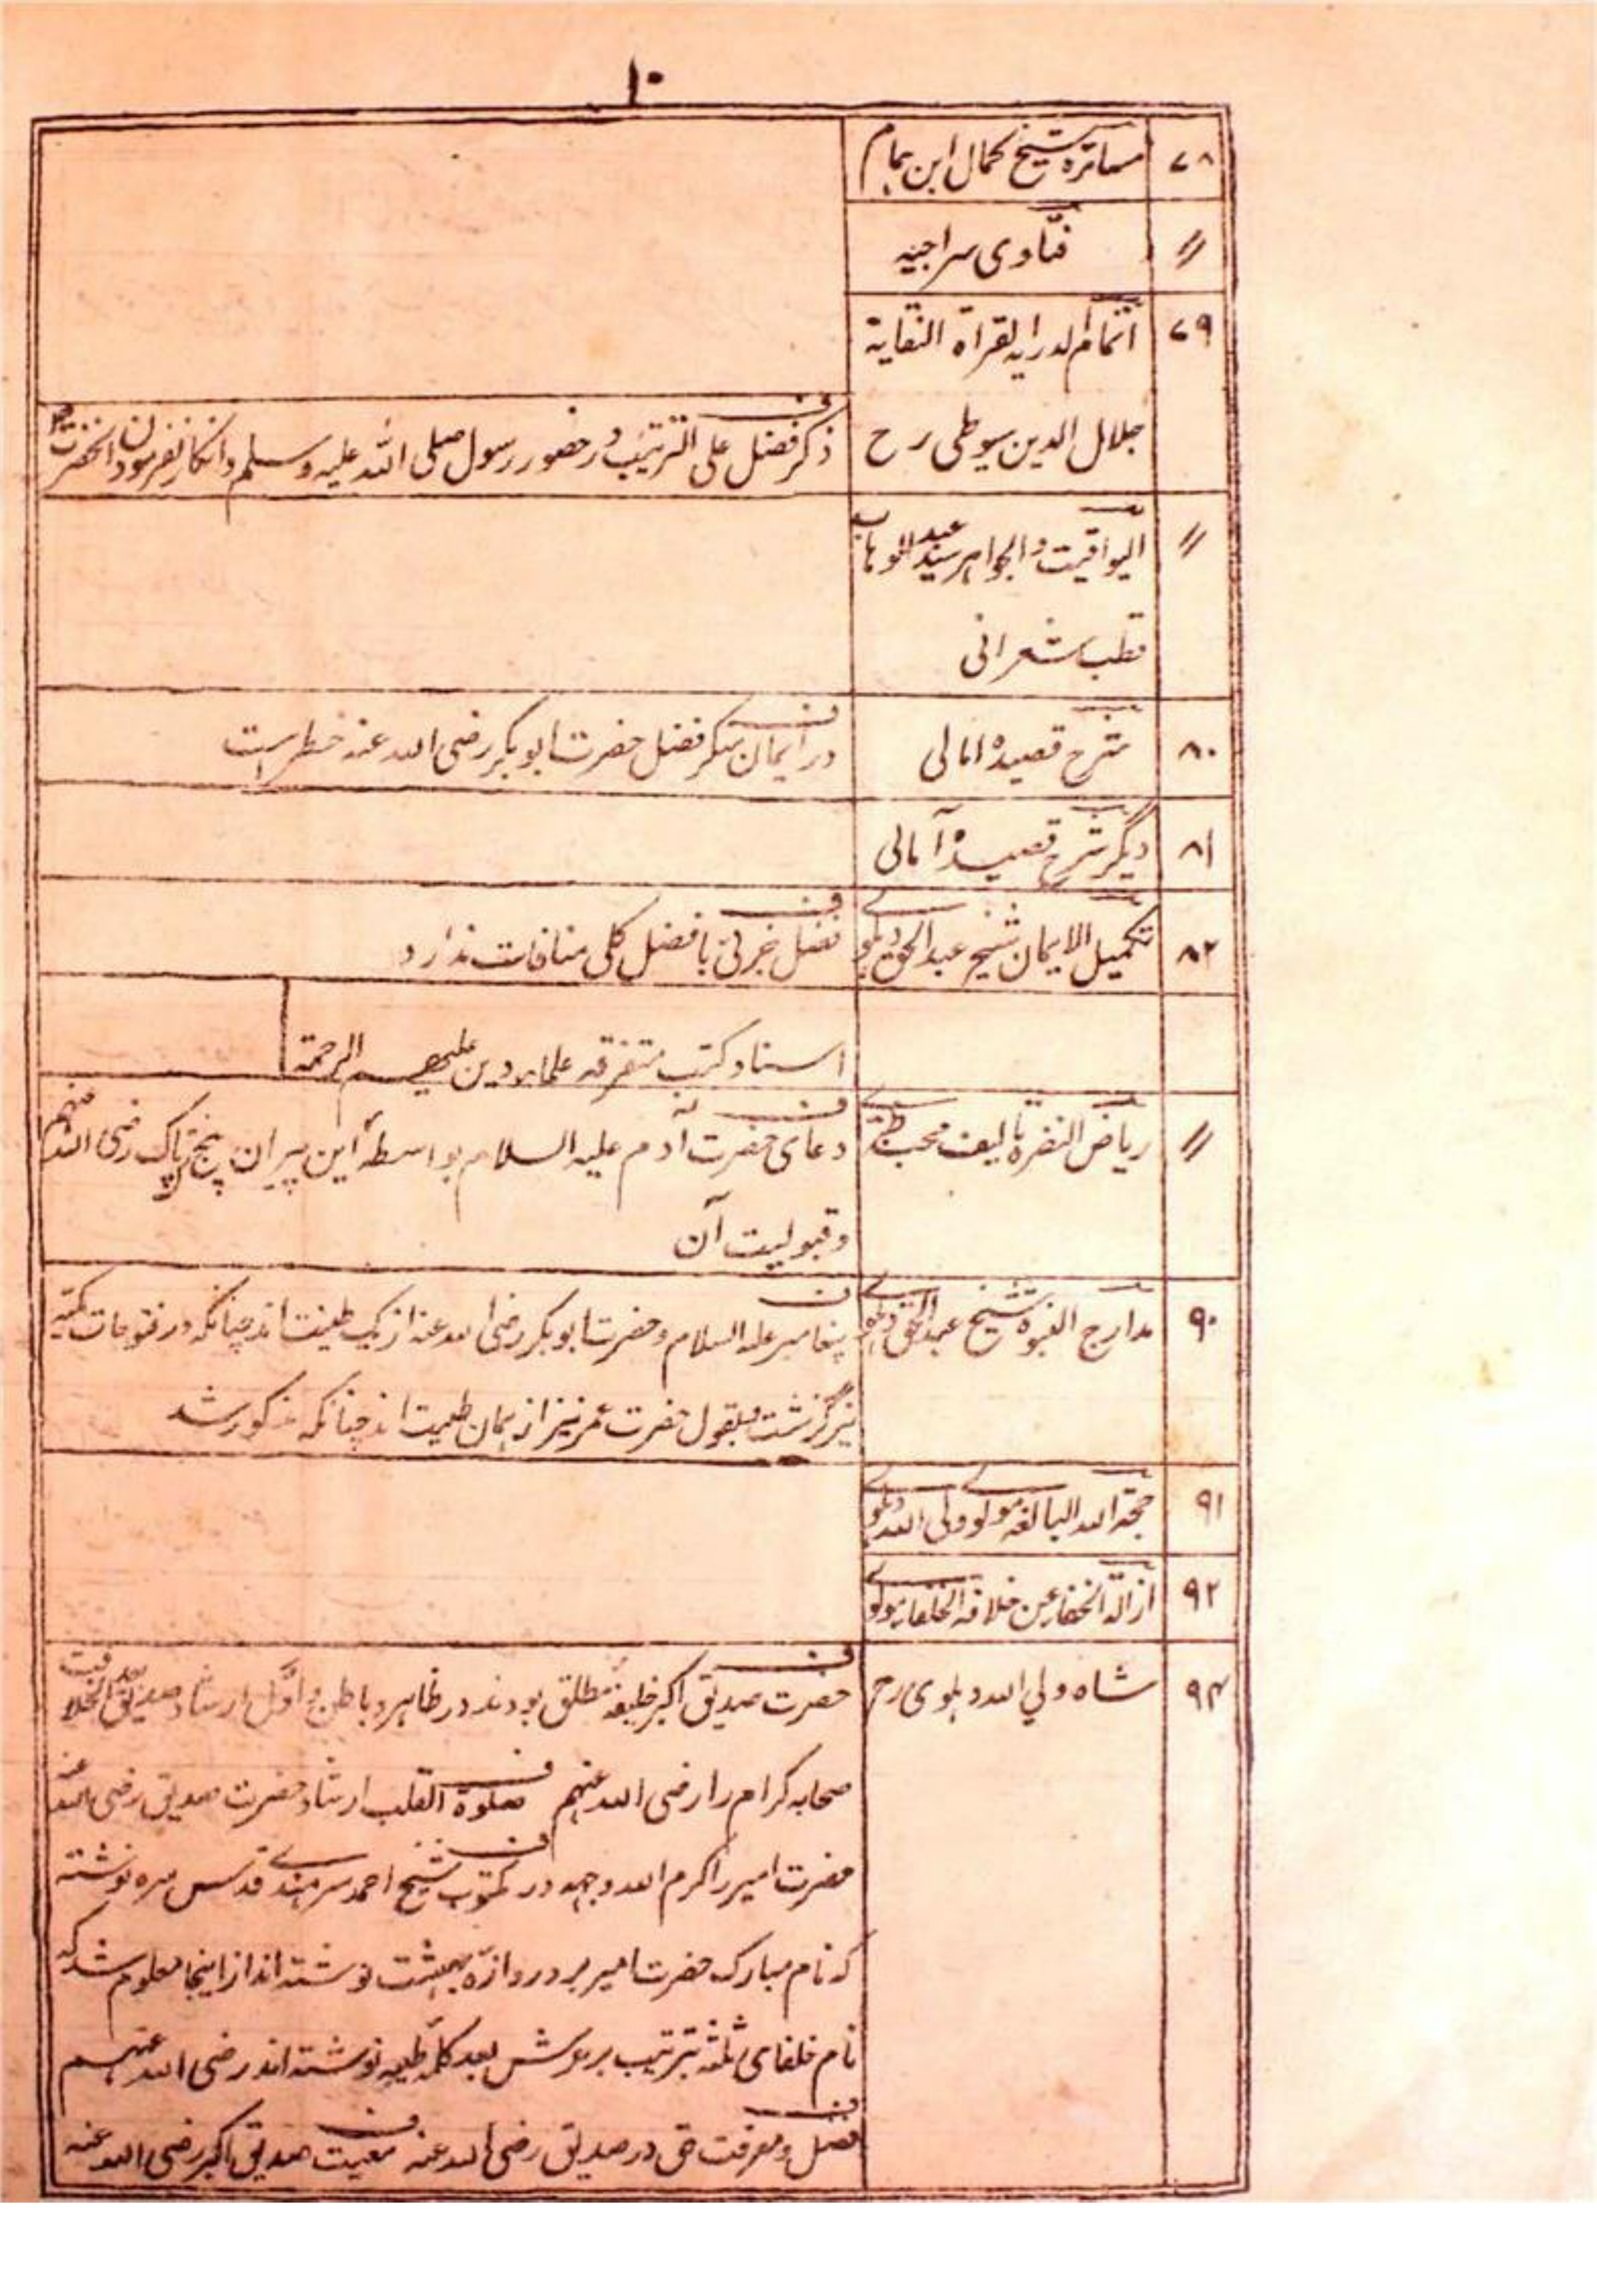 ۱۰
۷۸ مسائرہ شیخ کمال ابن ہمام
〃 فتاوی سراجیہ
۷۹ اتمام الدرایہ لقراۃ النقایۃ
جلال الدین سیوطی رح ف ذکر فضل علی الترتیب در حضور رسول صلی اللہ علیہ وسلم وانکار نفرمودن آنحضرت
〃 الیواقیت والجواہر سید عبد الوہاب
قطب شعرانی
۸۰ شرح قصیدہ امالی ف در ایمان منکر فضل حضرت ابو بکر رضی اللہ عنہ خطر است
۸۱ دیگر شرح قصیدہ آمالی
۸۲ تکمیل الایمان شیخ عبد الحق دہلوے ف فضل جزئی با فضل کلی منافات ندارد
اسناد کتب متفرقہ علماء دین علیہم الرحمۃ
〃 ریاض النضرہ تالیف محب طبرے ف دعای حضرت آدم علیہ السلام بواسطۂ این پیران پنج پاک رضی اللہ عنہم
وقبولیت آن
۹۰ مدارج النبوہ شیخ عبد الحق دہلوے ف پیغامبر علیہ السلام وحضرت ابو بکر رضی اللہ عنہ از یک طینت اند چنانکہ در فتوحات مکیہ
نیز گزشت وبقول حضرت عمر نیز از ہمان طینت اند چنانکہ مذکور شد
۹۱ حجۃ اللہ البالغہ مولوے ولی اللہ دہلوے
۹۲ ازالۃ الخفاء عن خلافۃ الخلفاء مولوے
۹۴ شاہ ولي اللہ دہلوی رح ف حضرت صدیق اکبر خلیفہ مطلق بودند در ظاہر و باطن و اوّل ارشاد صدیق بعد الخلافت
صحابہ کرام را رضی اللہ عنہم ف صلوۃ القلب ارشاد حضرت صدیق رضی اللہ عنہ
حضرت امیر را کرم اللہ وجہہ ف در مکتوب شیخ احمد سرہندے قدس سرہ نوشتہ
کہ نام مبارک حضرت امیر بر دروازۂ بہشت نوشتہ اند از اینجا معلوم شد کہ
نام خلفای ثلثہ بترتیب بر عرش بعد کلمہ طیبہ نوشتہ اند رضی اللہ عنہم
ف فضل ومعرفت حق در صدیق رضی اللہ عنہ ف معیت صدیق اکبر رضی اللہ عنہ